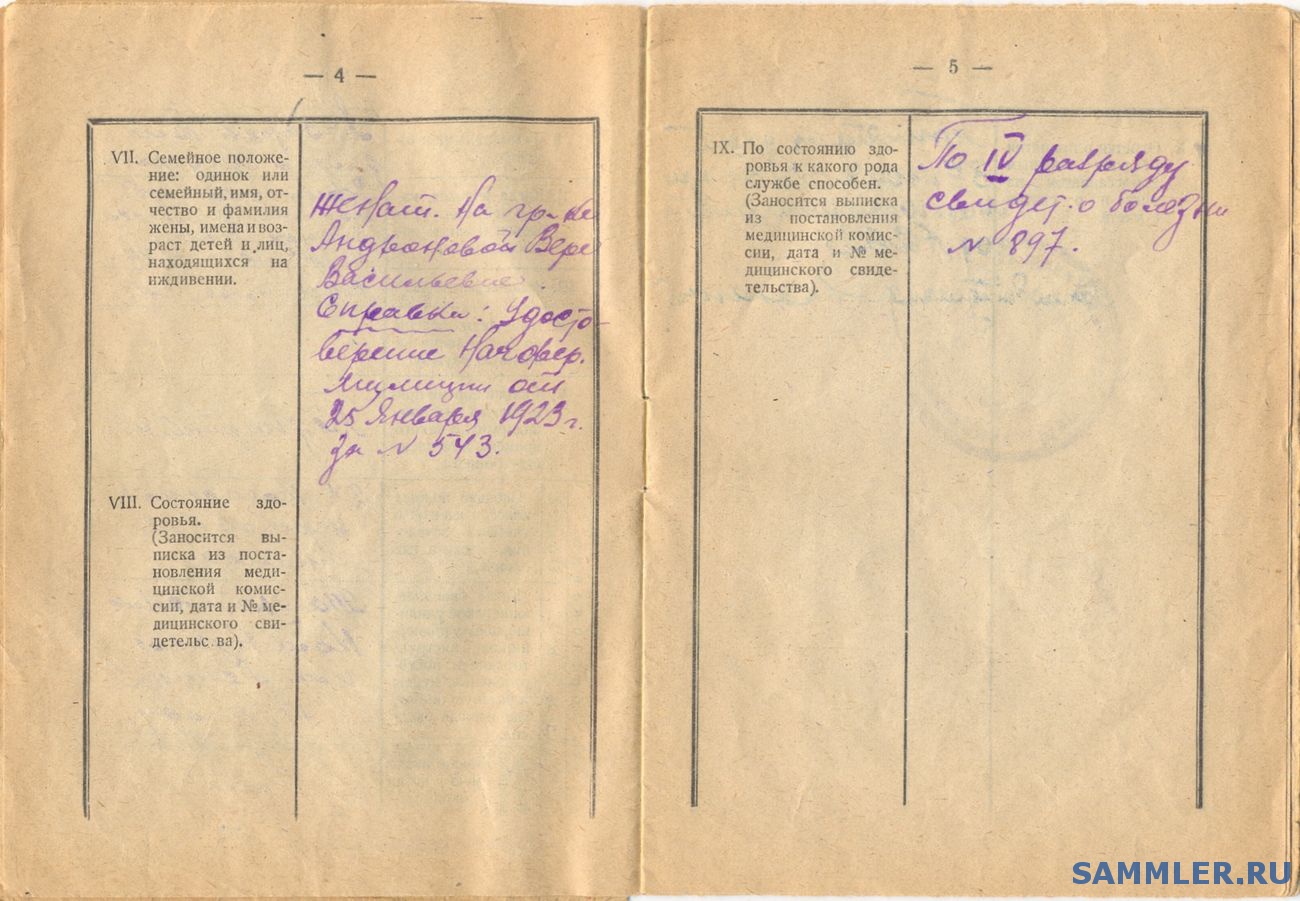 — 4 —
VII. Семейное положе-
ние: одинок или
семейный, имя, от-
чество и фамилия
жены, имена и воз-
раст детей и лиц,
находящихся на
иждивении.
Женат. На гр-ке
Андроновой Вере
Васильевне.
Справка: Удосто-
верение
милиции от
25 Января 1923 г.
за № 543.
VIII. Состояние здо-
ровья.
(Заносится вы-
писка из поста-
новления меди-
цинской комис-
сии, дата и № ме-
дицинского сви-
детельс ва).
— 5 —
IX. По состоянию здо-
ровья к какого рода
службе способен.
(Заносится выписка
из постановления
медицинской комис-
сии, дата и № ме-
дицинского свиде-
тельства).
По IV разряду
свидет. о болезни
№ 897.
SAMMLER.RU